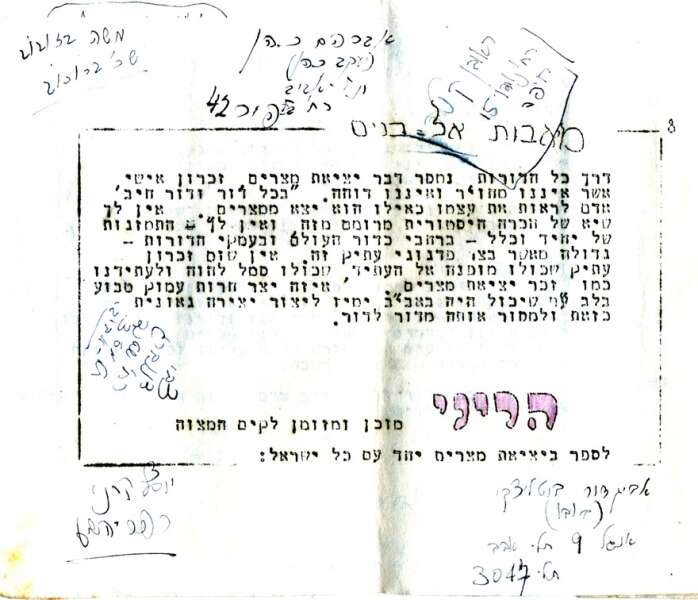 משה
אברהם כ.הן
(יעקב כהן)
ת״א
רח׳ 42
ראובן
רח׳ 15
חיפה
מאבות אל בנים
3
דרך כל הדורות נמסר דבר יציאת מצרים. זכרון אישי
אשר איננו מחויר ואיננו דוחה. "בכל דור ודור חייב
אדם לראות את עצמו כאילו הוא יצא ממצרים. אין לך
שיא של הכרה היסטורית מרומם מזה ואין לך – התמזגות
של יחיד וכלל – ברחבי כדור העולם ובעמקי הדורות –
גדולה מאשר בצו פדגוגי עתיק זה. אין שום זכרון
עתיק שכולו מופנה אל העתיד, שכולו סמל להוה ולעתידנו
כמו זכר יציאת מצרים. איזה יצר חרות עמוק טבוע
בלב עם שיכול היה באב"ב ימיו ליצור יצירה גאונית
כזאת ולמסור אותה מדור לדור.
הריני
מוכן ומזומן לקים המצוה
לספר ביציאת מצרים יחד עם כל ישראל:
יוסף
כפר יהושע
אביגדור
אנגל 9 תל אביב
תל. 3047